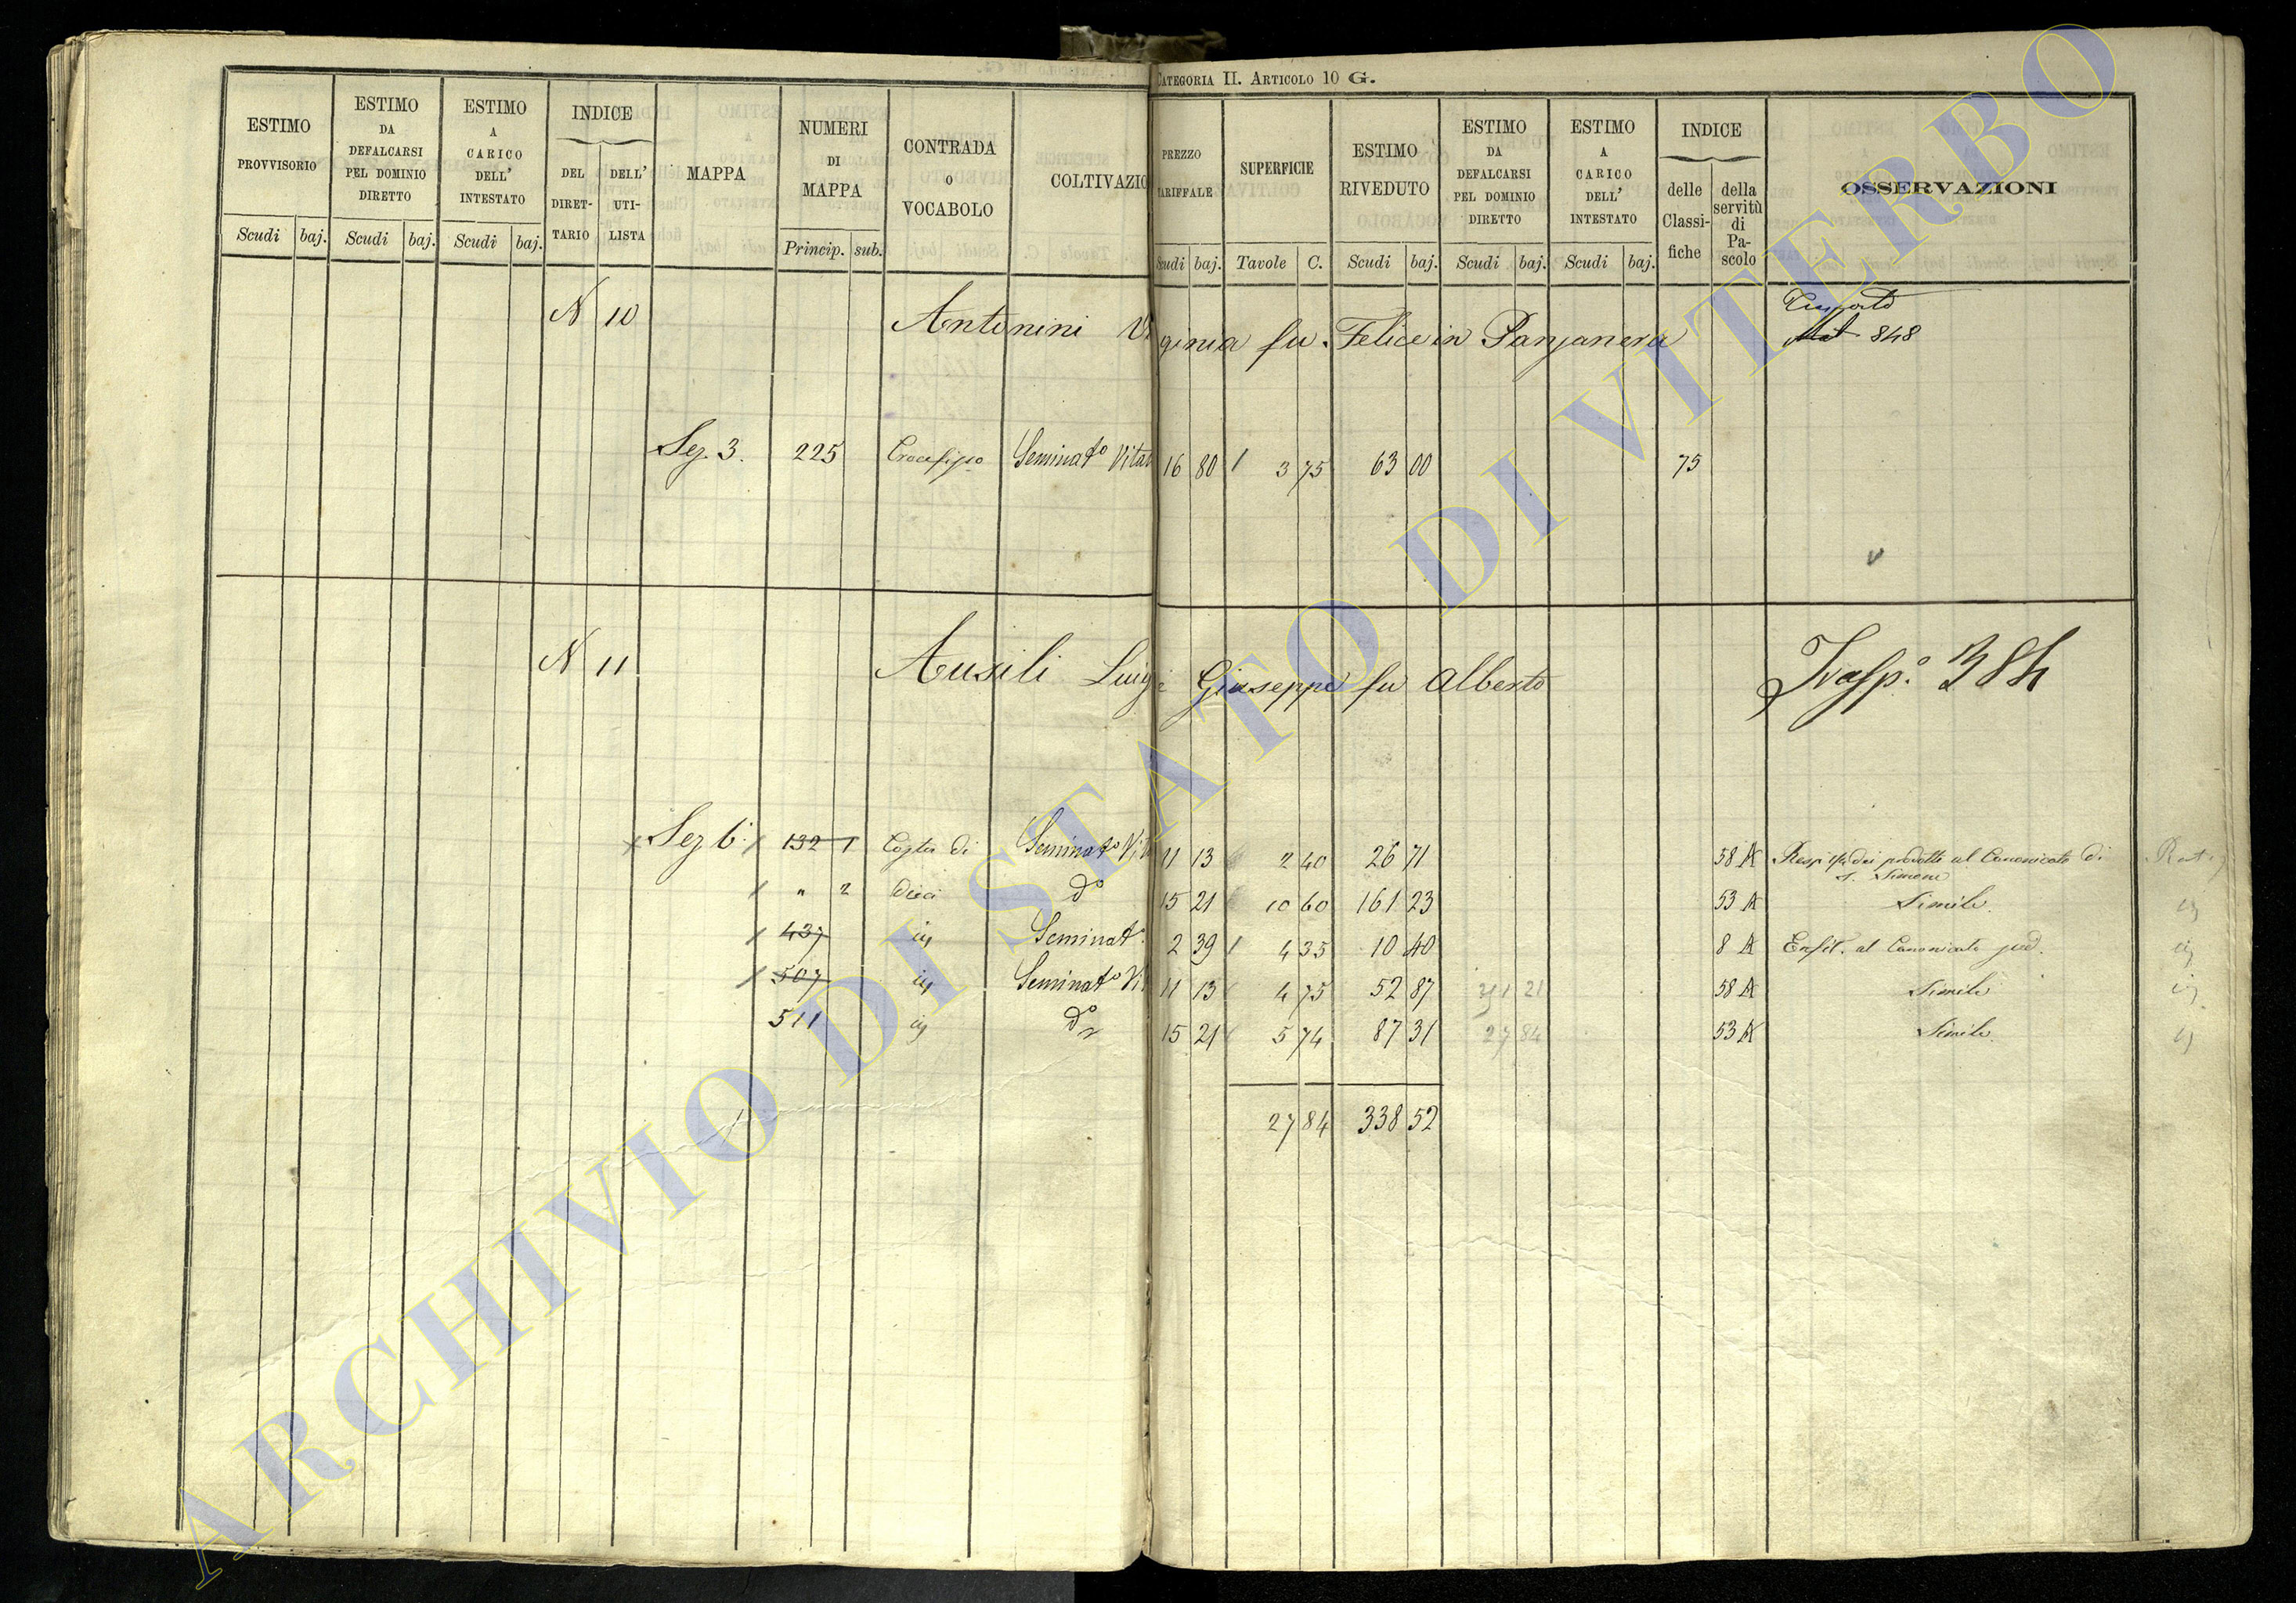 CATEGORIA II. ARTICOLO 10 G.
ESTIMO PROVVISORIO
ESTIMO DA DEFALCARSI PEL DOMINIO DIRETTO
ESTIMO A CARICO DELL' INTESTATO
INDICE
DEL DIRET- TARIO
DELL' UTI- LISTA
MAPPA
NUMERI DI MAPPA
CONTRADA O VOCABOLO
COLTIVAZIO
PREZZO TARIFFALE
SUPERFICIE
ESTIMO RIVEDUTO
ESTIMO DA DEFALCARSI PEL DOMINIO DIRETTO
ESTIMO A CARICO DELL' INTESTATO
INDICE
delle Classi- fiche
della servitù di Pa- scolo
OSSERVAZIONI
Scudi baj. Scudi baj. Scudi baj. Princip. sub. Scudi baj. Tavole C. Scudi baj. Scudi baj. Scudi baj.
N 10 Antonini Virginia fu Felice in
848
Sez. 3. 225 Seminato Vitato 16 80 3 75 63 00 75
N 11 Ausili Luigi Giuseppe fu Alberto
Trasp.o 384
Sez 6.a 132 1 Seminato Vit 11 13 2 40 26 71 58 A Canonicato di
S. Simone
" 2 Dieci do 15 21 10 60 161 23 53 A Simile
437 Seminato 2 39 4 35 10 40 8 A Enfit. al Canonicato
507 Seminato Vi 11 13 4 75 52 87 58 A Simile
511 do 15 21 5 74 87 31 27 84 53 A Simile
27 84 338 52
ARCHIVIO DI STATO DI VITERBO